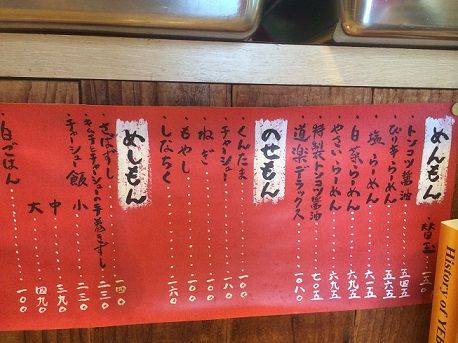 めんもん
・替玉・・一五〇
・トンコツ醤油・・・五四五
・ぴりキらーめん・・・五六五
・塩らーめん・・・六一五
・白菜らーめん・・・六九五
・やさいらーめん・・・六九五
・特製トンコツ醤油・・・七〇五
・道楽デラックス・・・一〇八〇
のせもん
・くんたま・・・一〇〇
・チャーシュー・・・一八〇
・ねぎ・・・一〇〇
・もやし・・・一〇〇
・しなちく・・・一六〇
めしもん
・さばずし・・・一四〇
・キムチとチャーシューの手巻きずし・・・二三〇
・チャーシュー飯 小・・・二三〇
中・・・三九〇
大・・・四九〇
・白ごはん・・・一〇〇
History of YEB